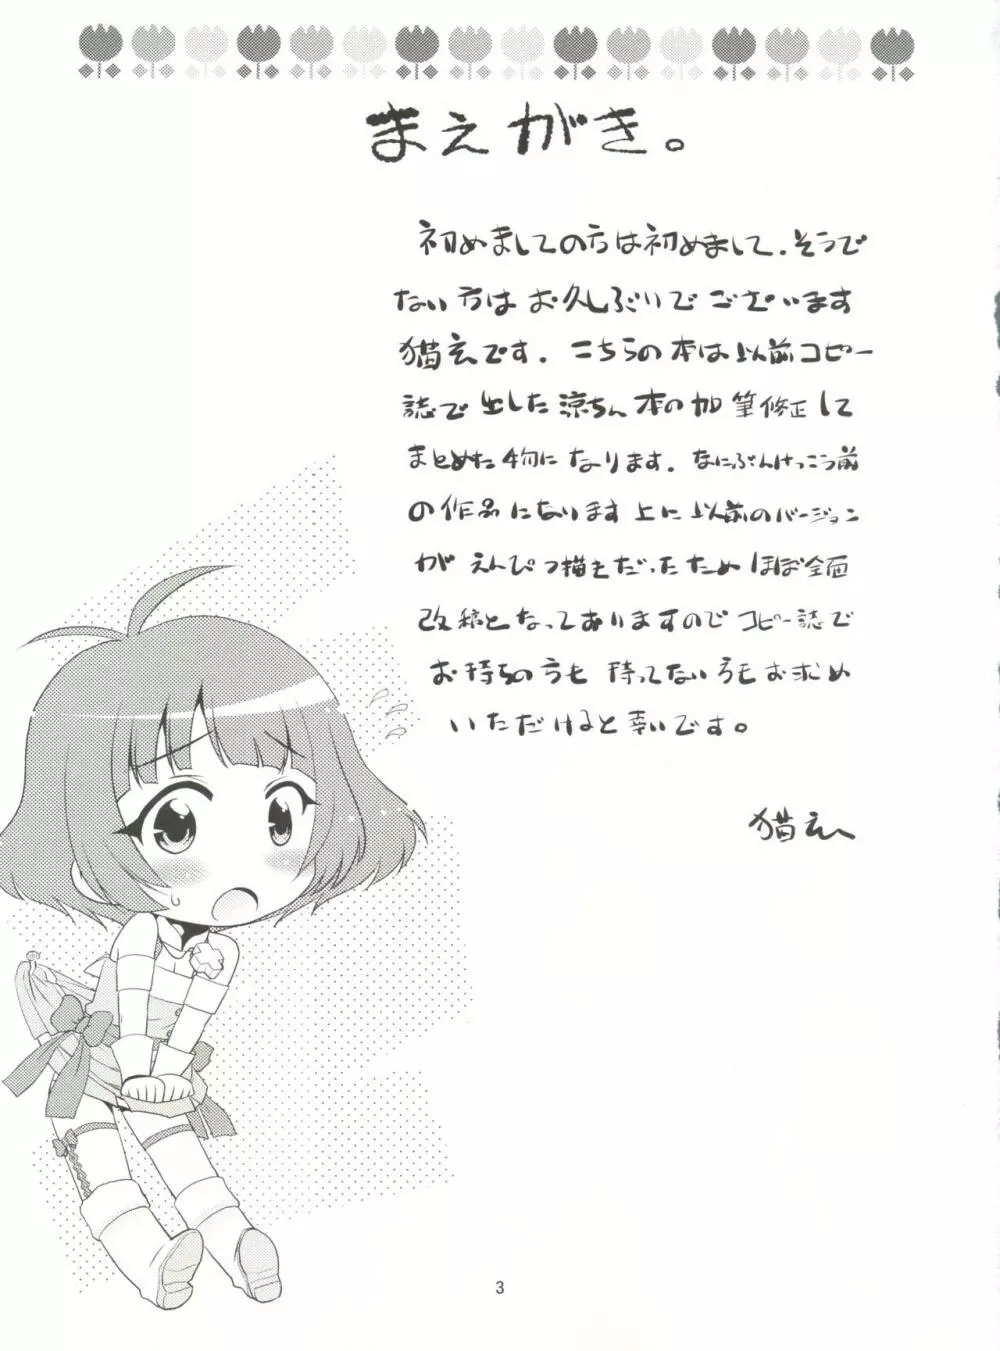 まえがき。
初めましての方は初めまして、そうで
ない方はお久しぶいでございます
猫えです。こちらの本は以前コピー
誌で出した涼ちん本の加筆修正して
まとめた物になります。なにぶんけっこう前
の作品になります上に以前のバージョン
がえんぴつ描きだったためほぼ全面
改稿となってありますのでコピー誌で
お持ちの方も持ってない方もお求め
いただけると幸いです。
猫え
3